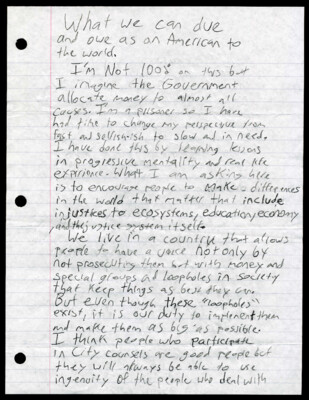 What we can due
and owe as an American to
the world.
I'm Not 100% on this but
I imagine the Government
allocate money to almost all
causes. I'm a prisoner so I have
had time to change my perspective from
fast and selfishish to slow and in need.
I have done this by learning lessons
in progressive mentality and real life
experience. What I am asking here
is to encourage people to make differences
in the world that matter that include
injustices to ecosystems, education, economy
and the justice system itself.
We live in a country that allows
people to have a voice not only by
not prosecuting them but with money and
special groups and loopholes in society
that keep things as best they can.
But even though these "loopholes"
exist, it is our duty to implement them
and make them as big as possible.
I think people who participate
in City counsels are good people but
they will always be able to use
ingenuity of the people who deal with